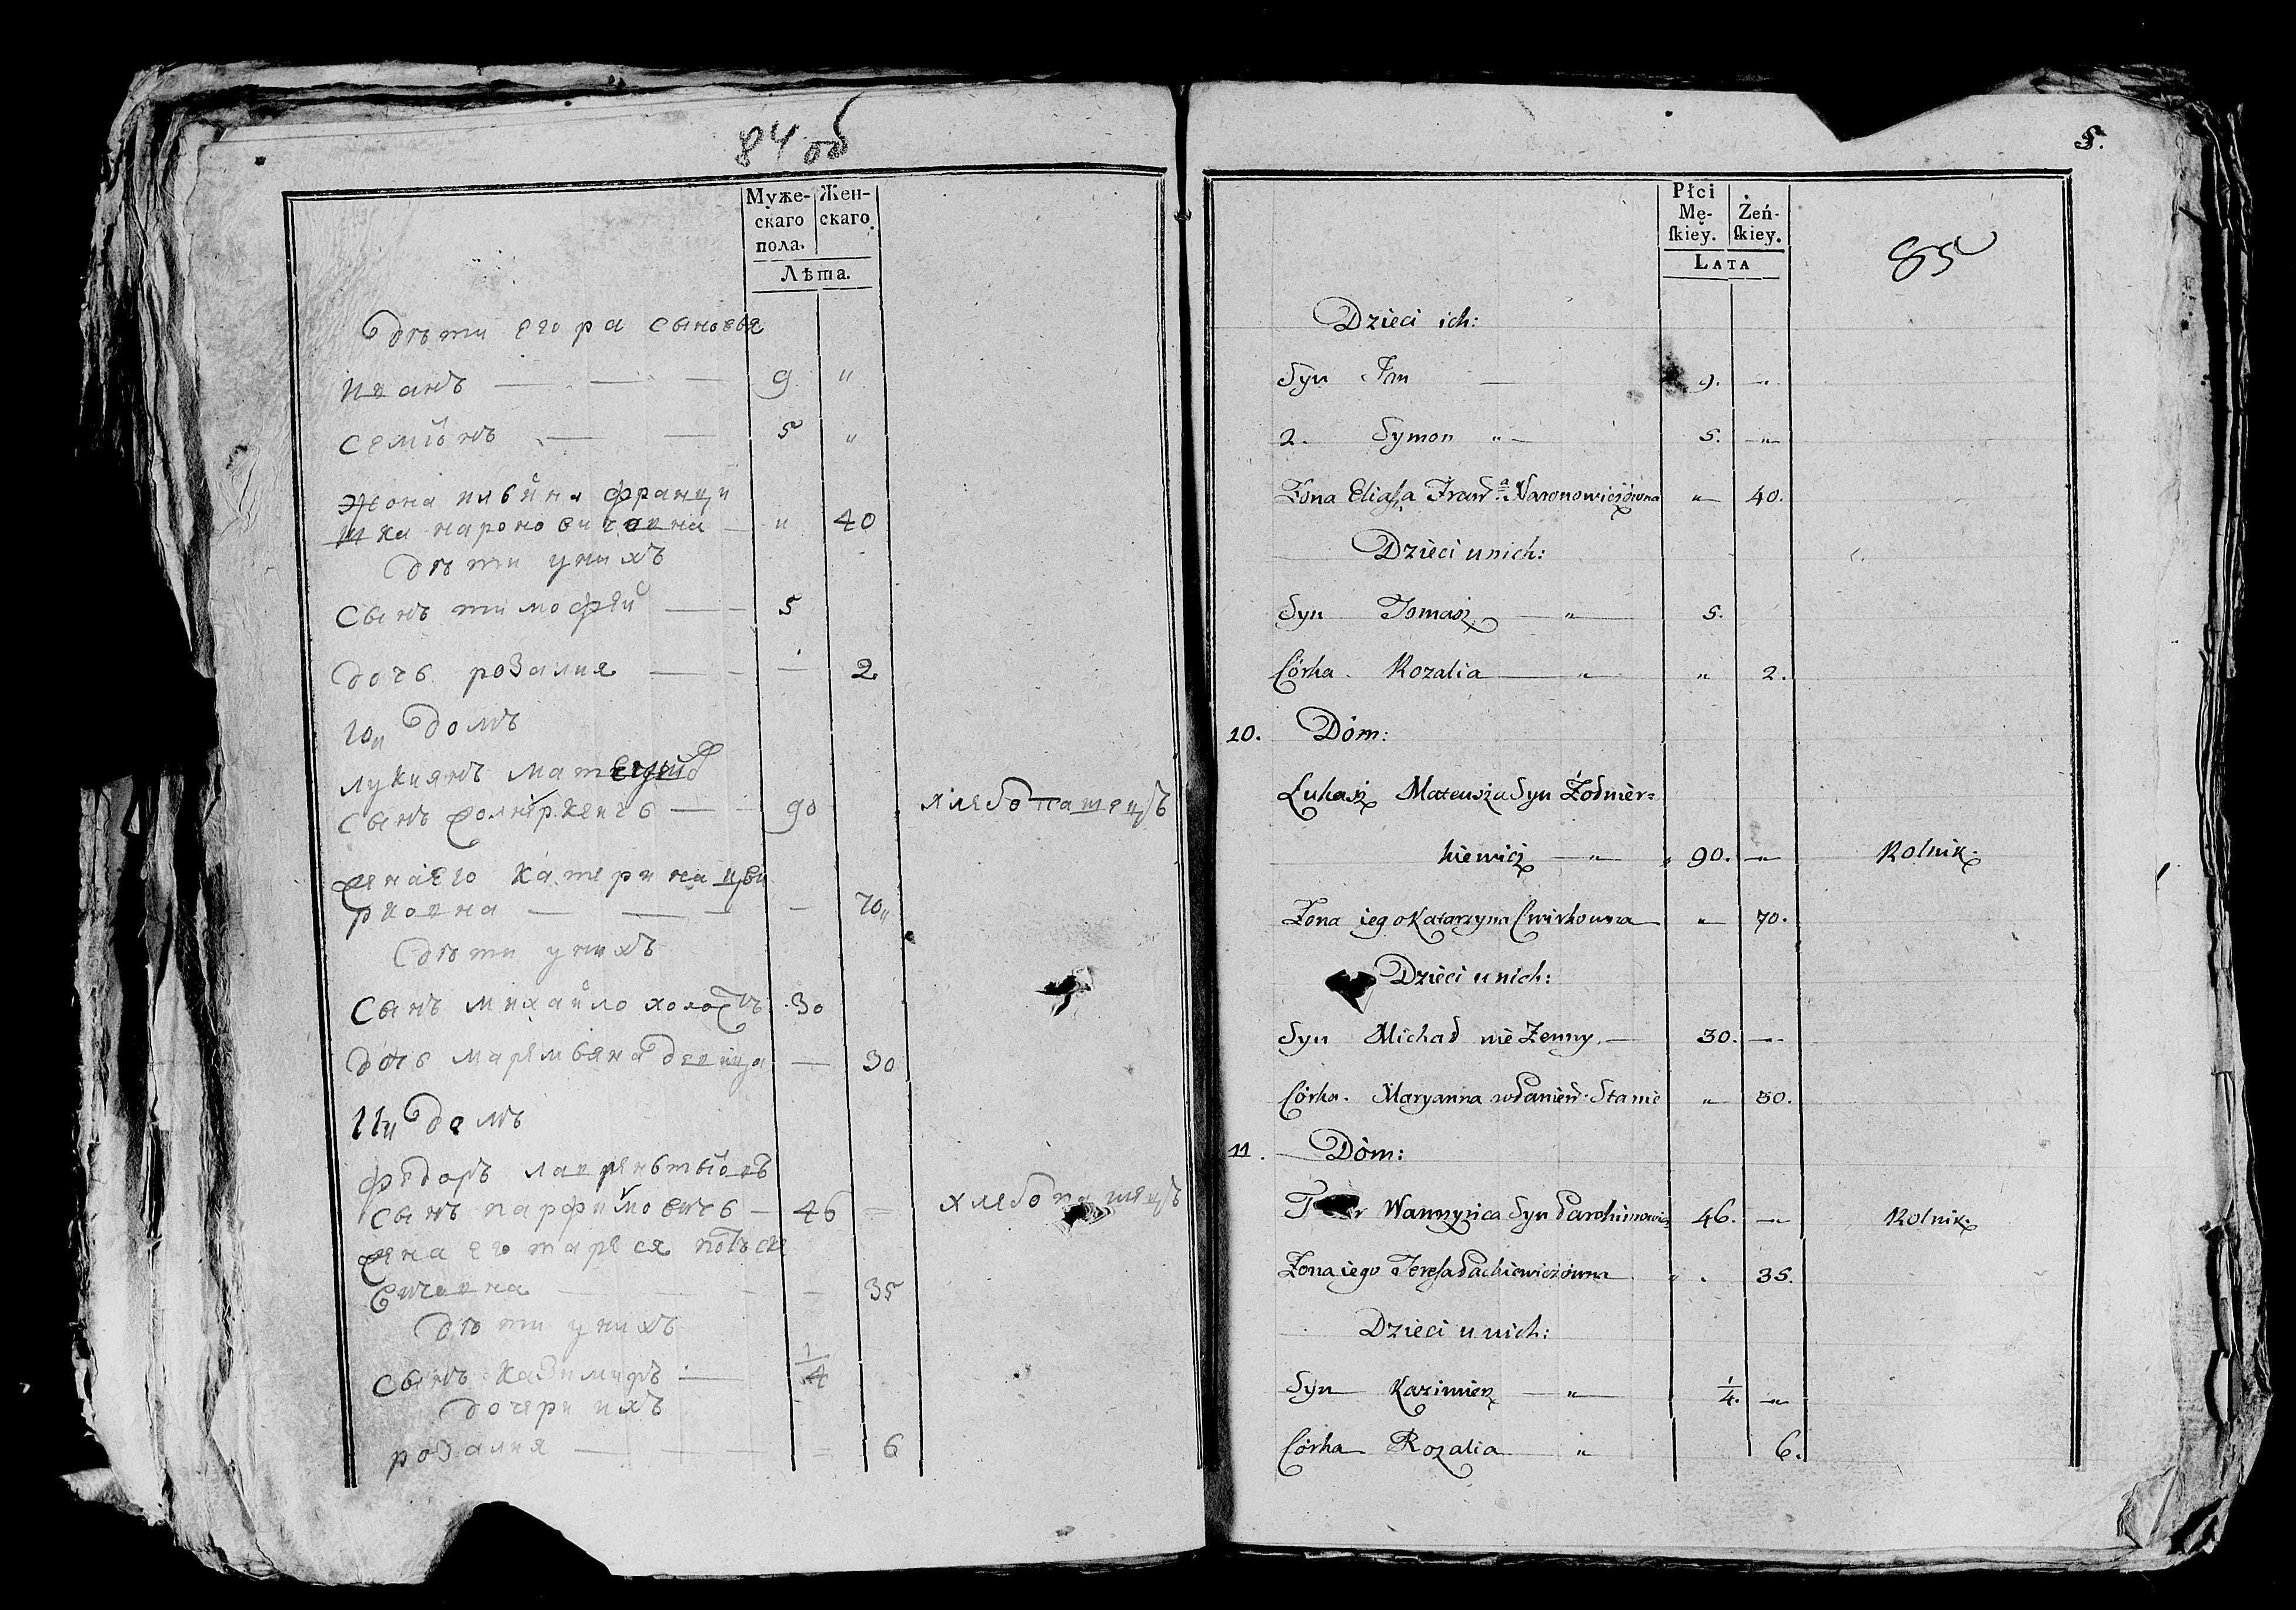 84 об
Муже-
скаго
пола.
Жен-
скаго
Лѣта.
дѣти егора сыновья
иванъ — — — 9 "
семіонъ — — 5 "
жона ильина франци
шка нароновичовна — " 40
дѣти унихъ
Сынъ тимофѣй — — 5
дочь розалия — — — 2
10й домъ
лукиянъ матвеивъ
сынъ жолнѣркевичь — — 90 хлебопашецъ
жена его катерина цви
рковна — — — — 70
дѣти унихъ
Сынъ михайло холостъ 30
дочь марямьяна девица — 30
11й домъ
федоръ лаврентьіовъ
сынъ парфимовичь — 46 = хлебопашецъ
жена его тареся
вичовна — — — — 35
дѣти унихъ
сынъ казимиръ — 1/4
дочери ихъ
розалия — — — = 6
5.
Płci
Mę-
ſkiey.
Żeń-
ſkiey.
LATA
85
Dzieci ich:
Syn Jan — 9. — "
2. Symon " — 5. — "
Żona Eliaſza Franc.a Naronowiczówna " 40.
Dzieci u nich:
Syn Tomasz — " — 5.
Córka. Rozalia — " — " 2.
10. Dóm:
Łukasz Mateusza Syn Żołnier=
kiewicz — " — 90. — " Rolnik.
Żona iego Katarzyna Cwirkowna " 70.
Dzieci u nich:
Syn Michał nie Żenny. — 30. — "
Córka. Maryanna w Panień: Stanie " 30.
11. Dóm:
Wawrzyńca Syn Parchimowicz 46. — " Rolnik.
Żona iego Tereſa Packiewiczówna " . 35.
Dzieci u nich:
Syn Kazimierz — " — 1/4. — "
Córka Rozalia — " 6.